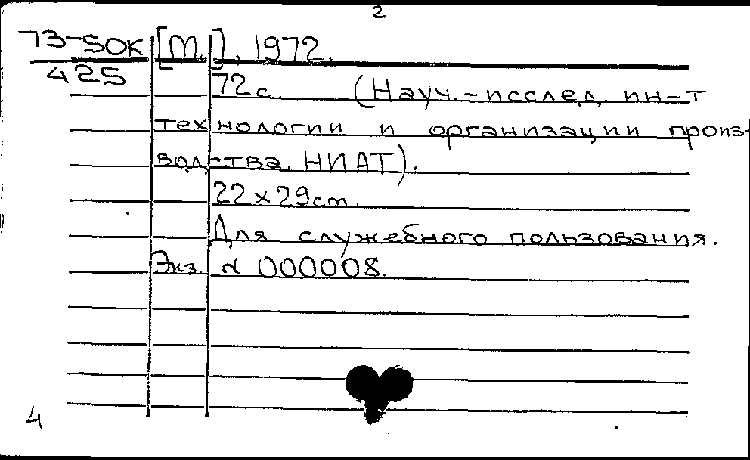 2
73-50К [М.], 1972.
425
72с. (Науч.-исслед. ин-т
технологии и организации произ-
водства. НИАТ).
22х29cm.
Для служебного пользования.
Экз. N 000008.
4